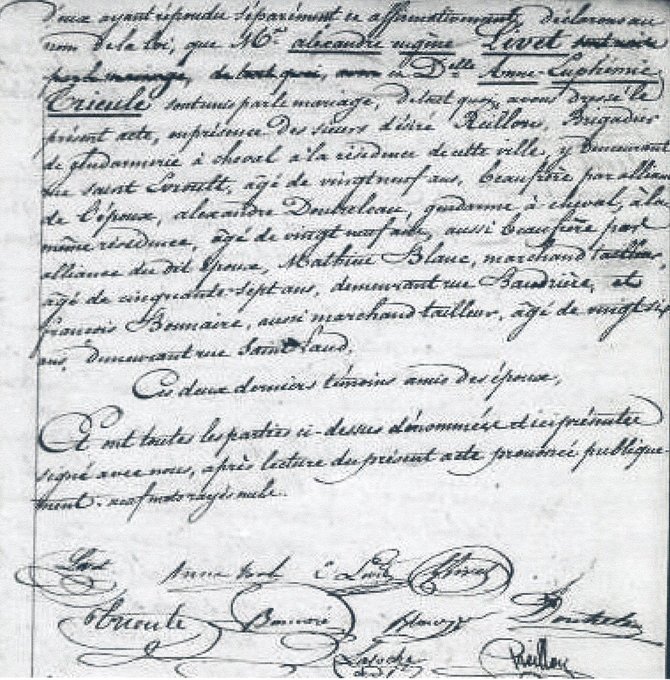 d'eux ayant répondu séparément et affirmativement, déclarons au
nom de la loi, que Mr. alexandre eugène Livet sont unis
par le mariage, de tout quoi, avons et Dlle. Anne-Euphémie
Trioule sont unis par le mariage, de tout quoi, avons dressé le
présent acte, en présence des sieurs désiré Reillon, Brigadier
de gendarmerie à cheval à la résidence de cette ville, y demeurant
rue saint Evroult, âgé de vingt neuf ans, beaufrère par allian
de l'époux, alexandre Doubeleau, gendarme à cheval, à la
même résidence, âgé de vingt neuf ans, aussi beaufrère par
alliance du dit époux, Mathieu Blanc, marchand tailleur,
âgé de cinquante-sept ans, demeurant rue Baudrière, et
françois Bonnaire, aussi marchand tailleur, âgé de vingt six
ans, demeurant rue Saint Laud.
Ces deux derniers témoins amis des époux.
Et ont toutes les parties ci-dessus dénommées et ici présentes
signé avec nous, après lecture du présent acte prononcé publique-
ment. neuf mots rayés nuls.
Livet E Livet
Trioule Bonnaire Blanc
Laroche Reillon